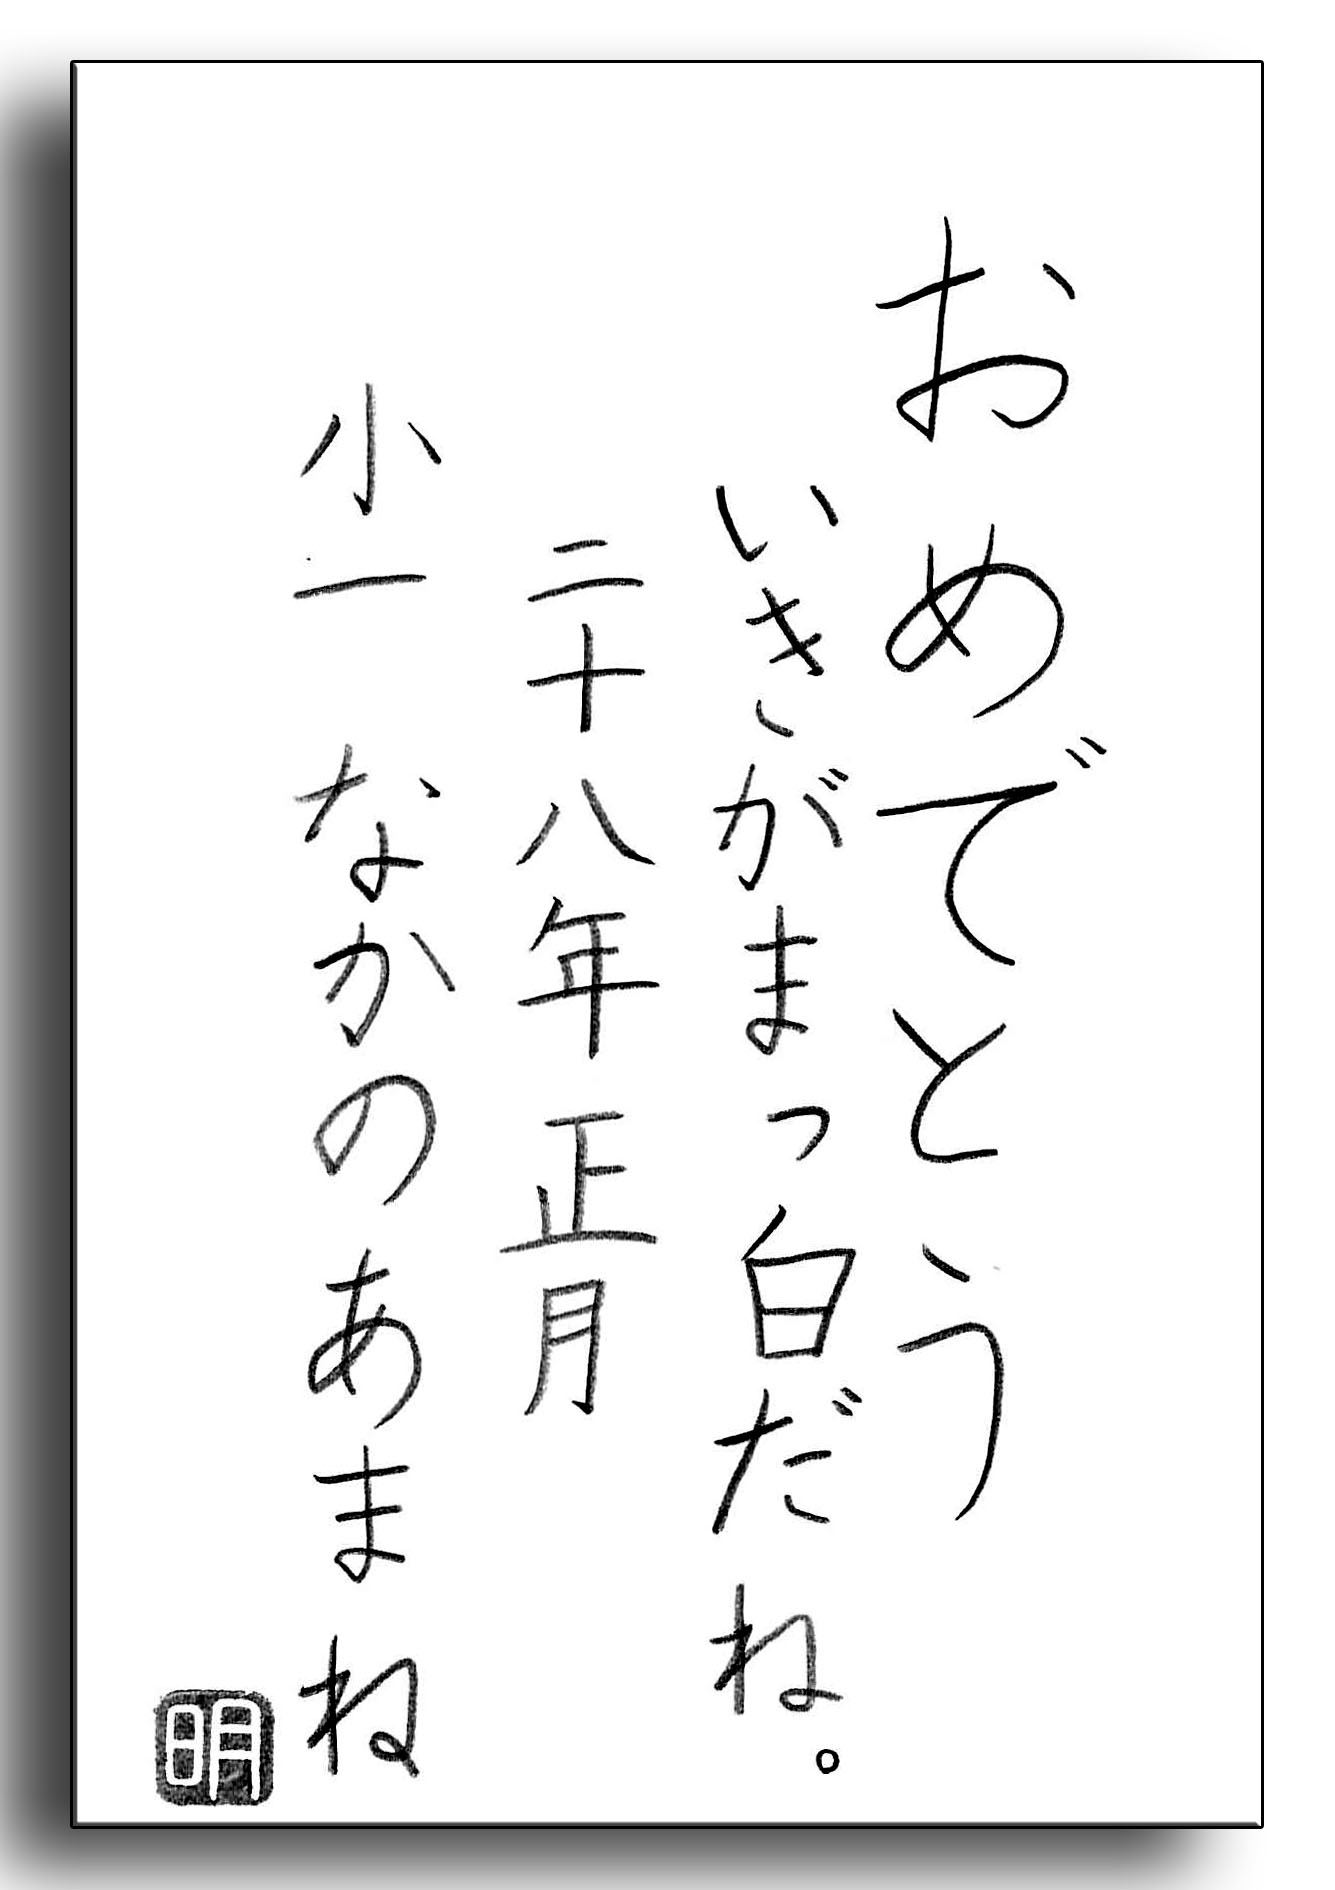 おめでとう
いきがまっ白だね。
二十八年正月
小一 なかのあまね
明